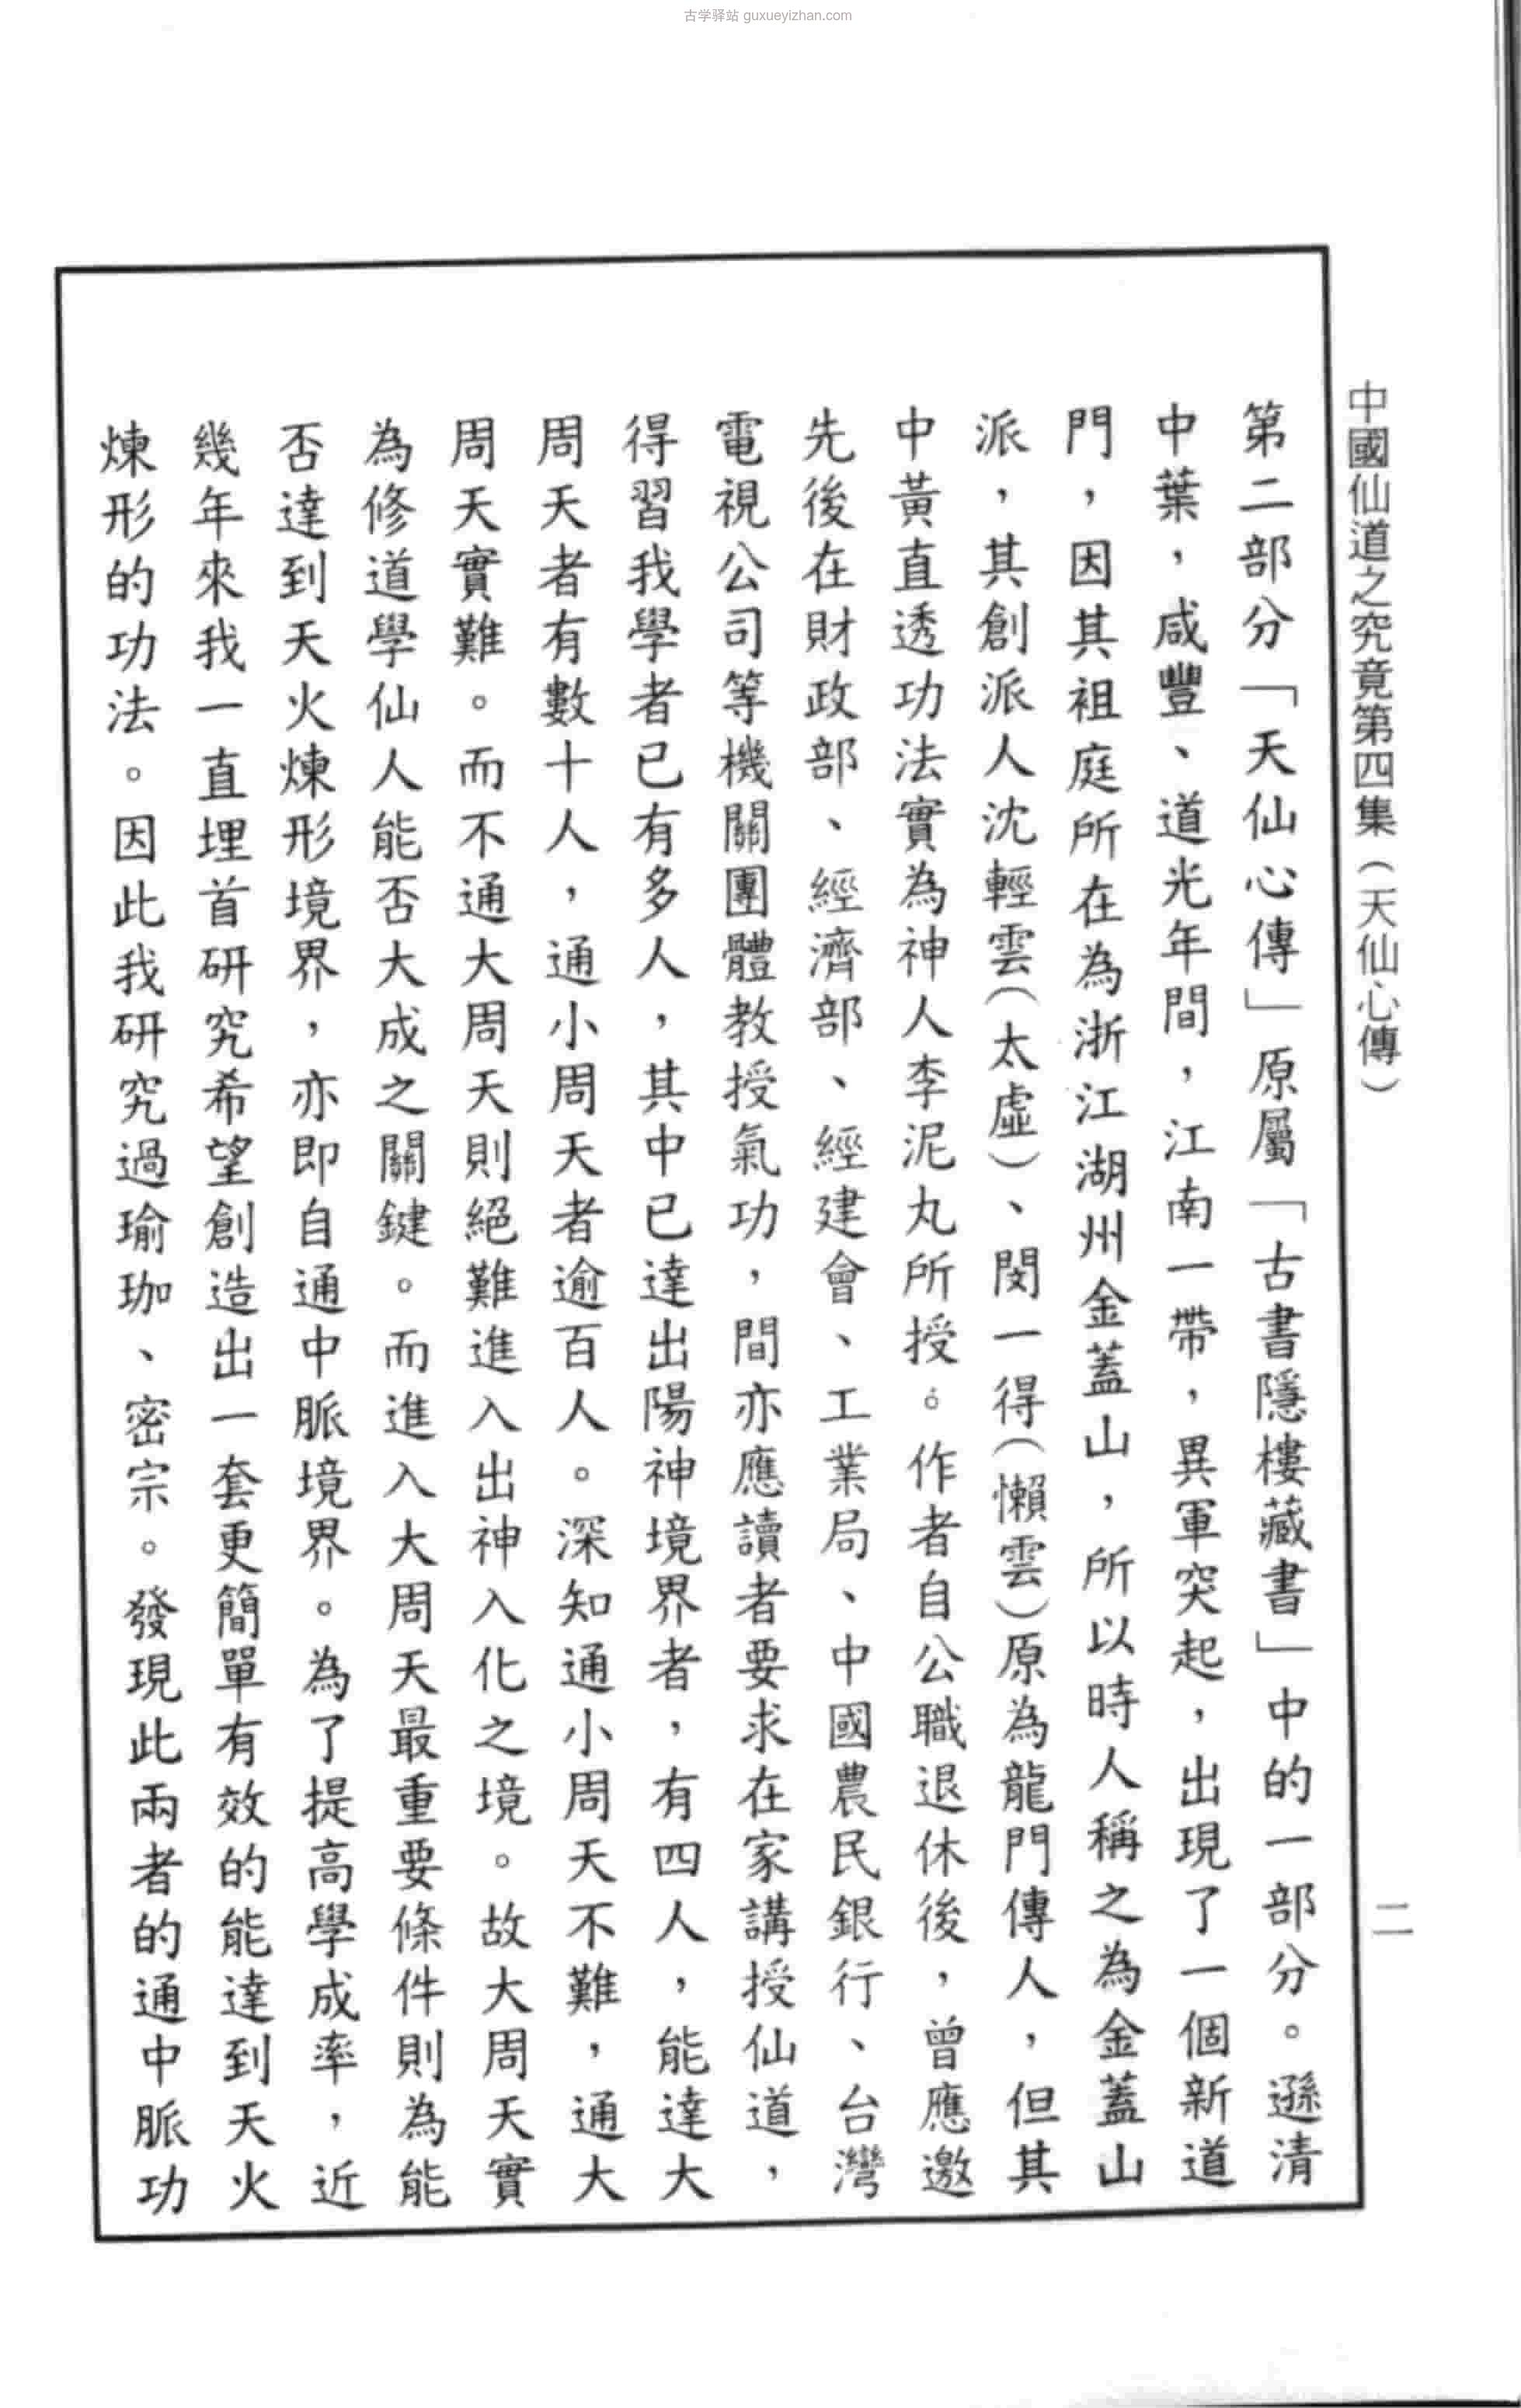 古学驿站 guxueyizhan.com
中國仙道之究竟第四集(天仙心傳)
二
第二部分「天仙心傳」原屬「古書隱樓藏書」中的一部分。遜清
中葉，咸豐、道光年間，江南一帶，異軍突起，出現了一個新道
門，因其祖庭所在為浙江湖州金蓋山，所以時人稱之為金蓋山
派，其創派人沈輕雲(太虛)、閔一得(懶雲)原為龍門傳人，但其
中黃直透功法實為神人李泥丸所授。作者自公職退休後，曾應邀
先後在財政部、經濟部、經建會、工業局、中國農民銀行、台灣
電視公司等機關團體教授氣功，間亦應讀者要求在家講授仙道，
得習我學者已有多人，其中已達出陽神境界者，有四人，能達大
周天者有數十人，通小周天者逾百人。深知通小周天不難，通大
周天實難。而不通大周天則絕難進入出神入化之境。故大周天實
為修道學仙人能否大成之關鍵。而進入大周天最重要條件則為能
否達到天火煉形境界，亦即自通中脈境界。為了提高學成率，近
幾年來我一直埋首研究希望創造出一套更簡單有效的能達到天火
煉形的功法。因此我研究過瑜珈、密宗。發現此兩者的通中脈功